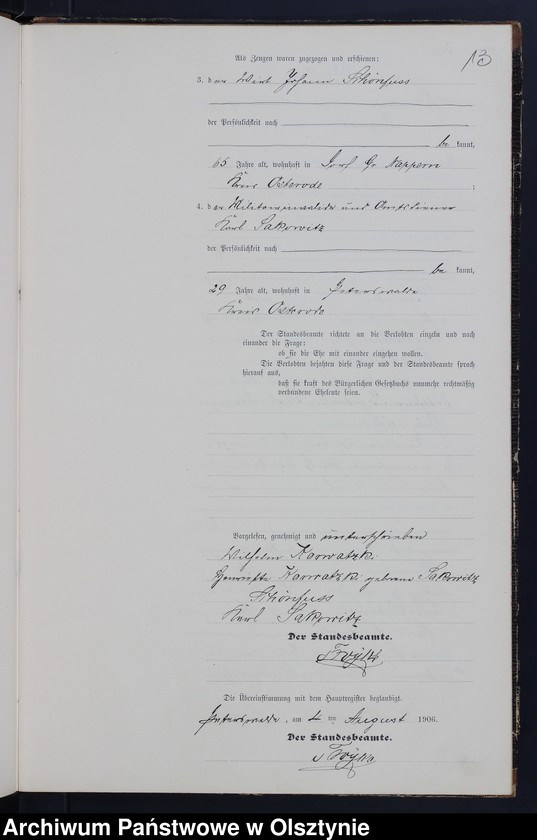 13
Als Zeugen waren zugezogen und erschienen:
3. der Wirt Johann Schönfuss
der Persönlichkeit nach
be kannt,
65 Jahre alt, wohnhaft in Dorf Gr Nappern
Kreis Osterode ;
4. der und Amtsdiener
Karl Sakowitz
der Persönlichkeit nach
be kannt,
29 Jahre alt, wohnhaft in Peterswalde
Kreis Osterode
Der Standesbeamte richtete an die Verlobten einzeln und nach
einander die Frage:
ob sie die Ehe mit einander eingehen wollen.
Die Verlobten bejahten diese Frage und der Standesbeamte sprach
hierauf aus,
daß sie kraft des Bürgerlichen Gesetzbuchs nunmehr rechtmäßig
verbundene Eheleute seien.
Vorgelesen, genehmigt und unterschrieben
Wilhelm Kawatzki
Henriette Kawatzki geborene Sakowitz
Schönfuss
Karl Sakowitz
Der Standesbeamte.
Die Übereinstimmung mit dem Hauptregister beglaubigt.
Peterswalde, am 4 ten August 1906.
Der Standesbeamte.
Archiwum Państwowe w Olsztynie